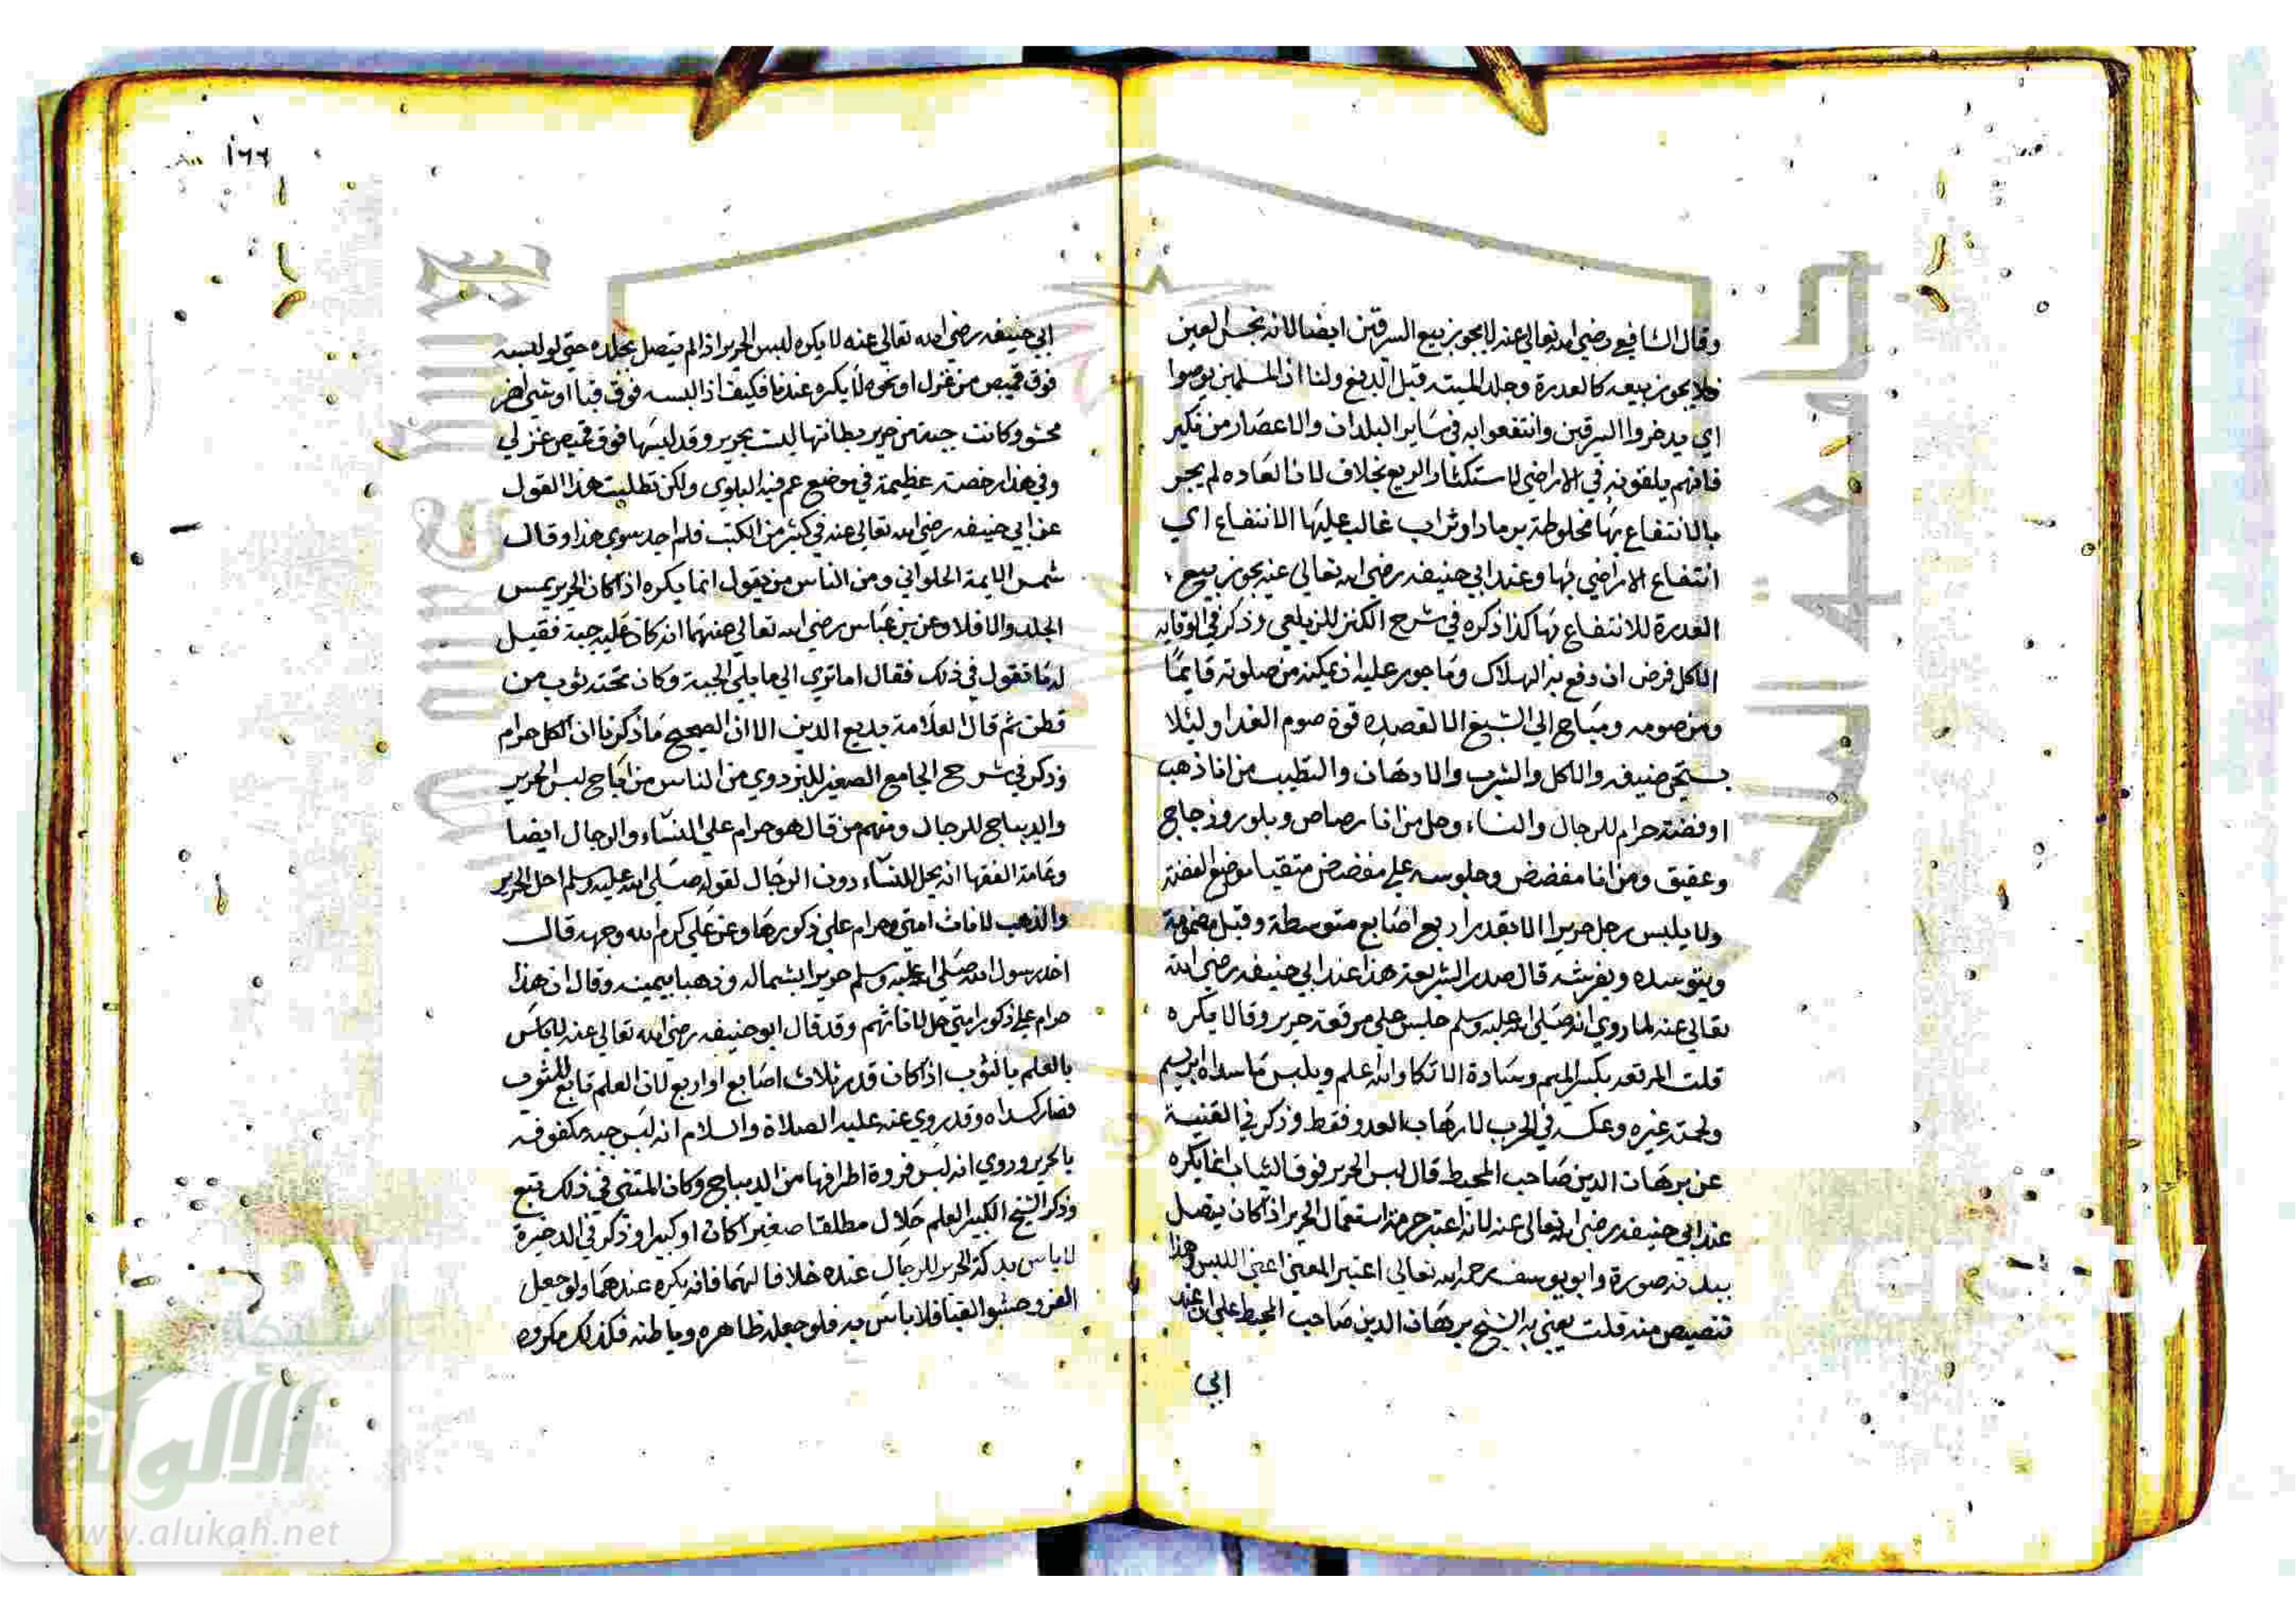 وقال الشافعي رضي الله تعالى عنه لا يجوز بيع السرقين ايضا لانه نجس العين
فلا يجوز بيعه كالعدرة وجلد الميته قبل الدبغ ولنا ان المسلمين
اي يدخروا السرقين وانتفعوا به في ساير البلدان والاعصار من نكير
فانهم يلقونه في الاراضي لاستكثار الريع بخلاف لان العاده لم يجر
بالانتفاع بها مخلوطة برماد او تراب غالب عليها الانتفاع اي
انتفاع الاراضي بها وعند ابي حنيفه رضي الله تعالى عنه يجوز بيع
العدرة للانتفاع بها كذا ذكره في شرح الكنز للزيلعي وذكر في الوقايه
الاكل فرض ان دفع به الهلاك وماجور عليه ان يمكنه من صلوته قايما
ومن صومه ومباح الي الشبع الا لقصده قوة صوم الغد او ليلا
يستحي ضيفه والاكل والشرب والادهان والتطيب من انا ذهب
او فضة حرام للرجال والنساء وحل من انا رصاص وبلور وزجاج
وعقيق ومن انا مفضض وجلوسه على مفضض متقيا موضع الفضة
ولا يلبس رجل حريرا الا بقدر اربع اصابع متوسطة وقيل مضمومة
ويتوسده ويفرشه قال صدر الشريعة هذا عند ابي حنيفه رضي الله
تعالى عنه لما روي انه صلى الله عليه وسلم جلس على مرفقة حرير وقالا يكره
قلت المرفقه بكسر الميم وسادة الاتكا والله اعلم ويلبس ما سداه ابريسم
ولحمته غيره وعكسه في الحرب لارهاب العدو فقط وذكر في القنية
عن برهان الدين صاحب المحيط قال لبس الحرير فوق الثياب انما يكره
عند ابي حنيفه رضي الله تعالى عنه لانه اعتبر حرمة استعمال الحرير اذا كان يتصل
ببدنه صورة وابو يوسف رحمه الله تعالى اعتبر المعنى اعني اللبس وهذا
تنصيص منه قلت يعني به الشيخ برهان الدين صاحب المحيط على ان عند
ابي
١٦٦
ابي حنيفه رضي الله تعالى عنه لا يكره لبس الحرير اذا لم يتصل بجلده حتى لو لبسه
فوق قميص من غزل او نحوه لا يكره عنده فكيف اذا لبسه فوق قبا او شي اخر
محشو وكانت جبة من حرير بطانتها ليست بحرير وقد لبسها فوق قميص غزلي
وفي هذا رخصة عظيمة في موضع عم فيه البلوي ولكن تطلبت هذا القول
عن ابي حنيفه رضي الله تعالى عنه في كثير من الكتب فلم اجد سوى هذا وقال
شمس الايمة الحلواني ومن الناس من يقول انما يكره اذا كان الحرير يمس
الجلد والا فلا وعن بن عباس رضي الله تعالى عنهما انه كان عليه جبة فقيل
له ما تقول في ذلك فقال اما تري الي ما يلي الجبة وكان تحته ثوب من
قطن ثم قال العلامة بديع الدين الا ان الصحيح ما ذكرنا ان الكل حرام
وذكر في شرح الجامع الصغير للبزدوي من الناس من اباح لبس الحرير
والديباج للرجال ومنهم من قال هو حرام على النساء والرجال ايضا
وعامة الفقها انه يحل للنساء دون الرجال لقوله صلى الله عليه وسلم احل الحرير
والذهب لاناث امتي وحرام على ذكورها وعن علي كرم الله وجهه قال
اخد رسول الله صلى الله عليه وسلم حريرا بشماله وذهبا بيمينه وقال ان هذا
حرام على ذكور امتي حل لاناثهم وقد قال ابو حنيفه رضي الله تعالى عنه لا باس
بالعلم بالثوب اذا كان قدر ثلاث اصابع او اربع لان العلم تابع للثوب
فصار كسداه وقد روي عنه عليه الصلاة والسلام انه لبس جبه مكفوفه
بالحرير وروي انه لبس فروة اطرافها من الديباج وكان المتقى في ذلك تبع
وذكر الشيخ الكبير العلم حلال مطلقا صغيرا كان او كبيرا وذكر في الدخيرة
لا باس بدكة الحرير للرجال عنده خلافا لهما فانه يكره عندهما ولو جعل
القز وحشو القبا فلا باس به فلو جعله ظاهره وباطنه فكذلك مكروه
شبكة
الألوكة
www.alukah.net